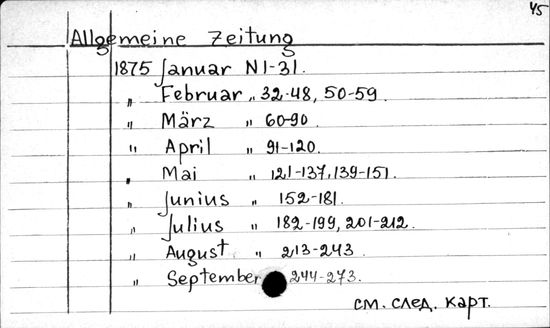 45
Allgemeine Zeitung
1875 Januar N1-31.
„ Februar „ 32-48, 50-59.
„ März „ 60-90.
„ April „ 91-120.
„ Mai „ 121-137, 139-151.
„ Junius „ 152-181.
„ Julius „ 182-199, 201-212.
„ August „ 213-243
„ September 244-273.
см. след. карт.